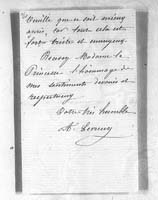 Veuille que ce soit mieux
car tout cela est
triste et ennuyeux.
Recevez Madame la
Princesse l'hommage de
mes sentiments dévoués et
respectueux
Votre très humble
A.